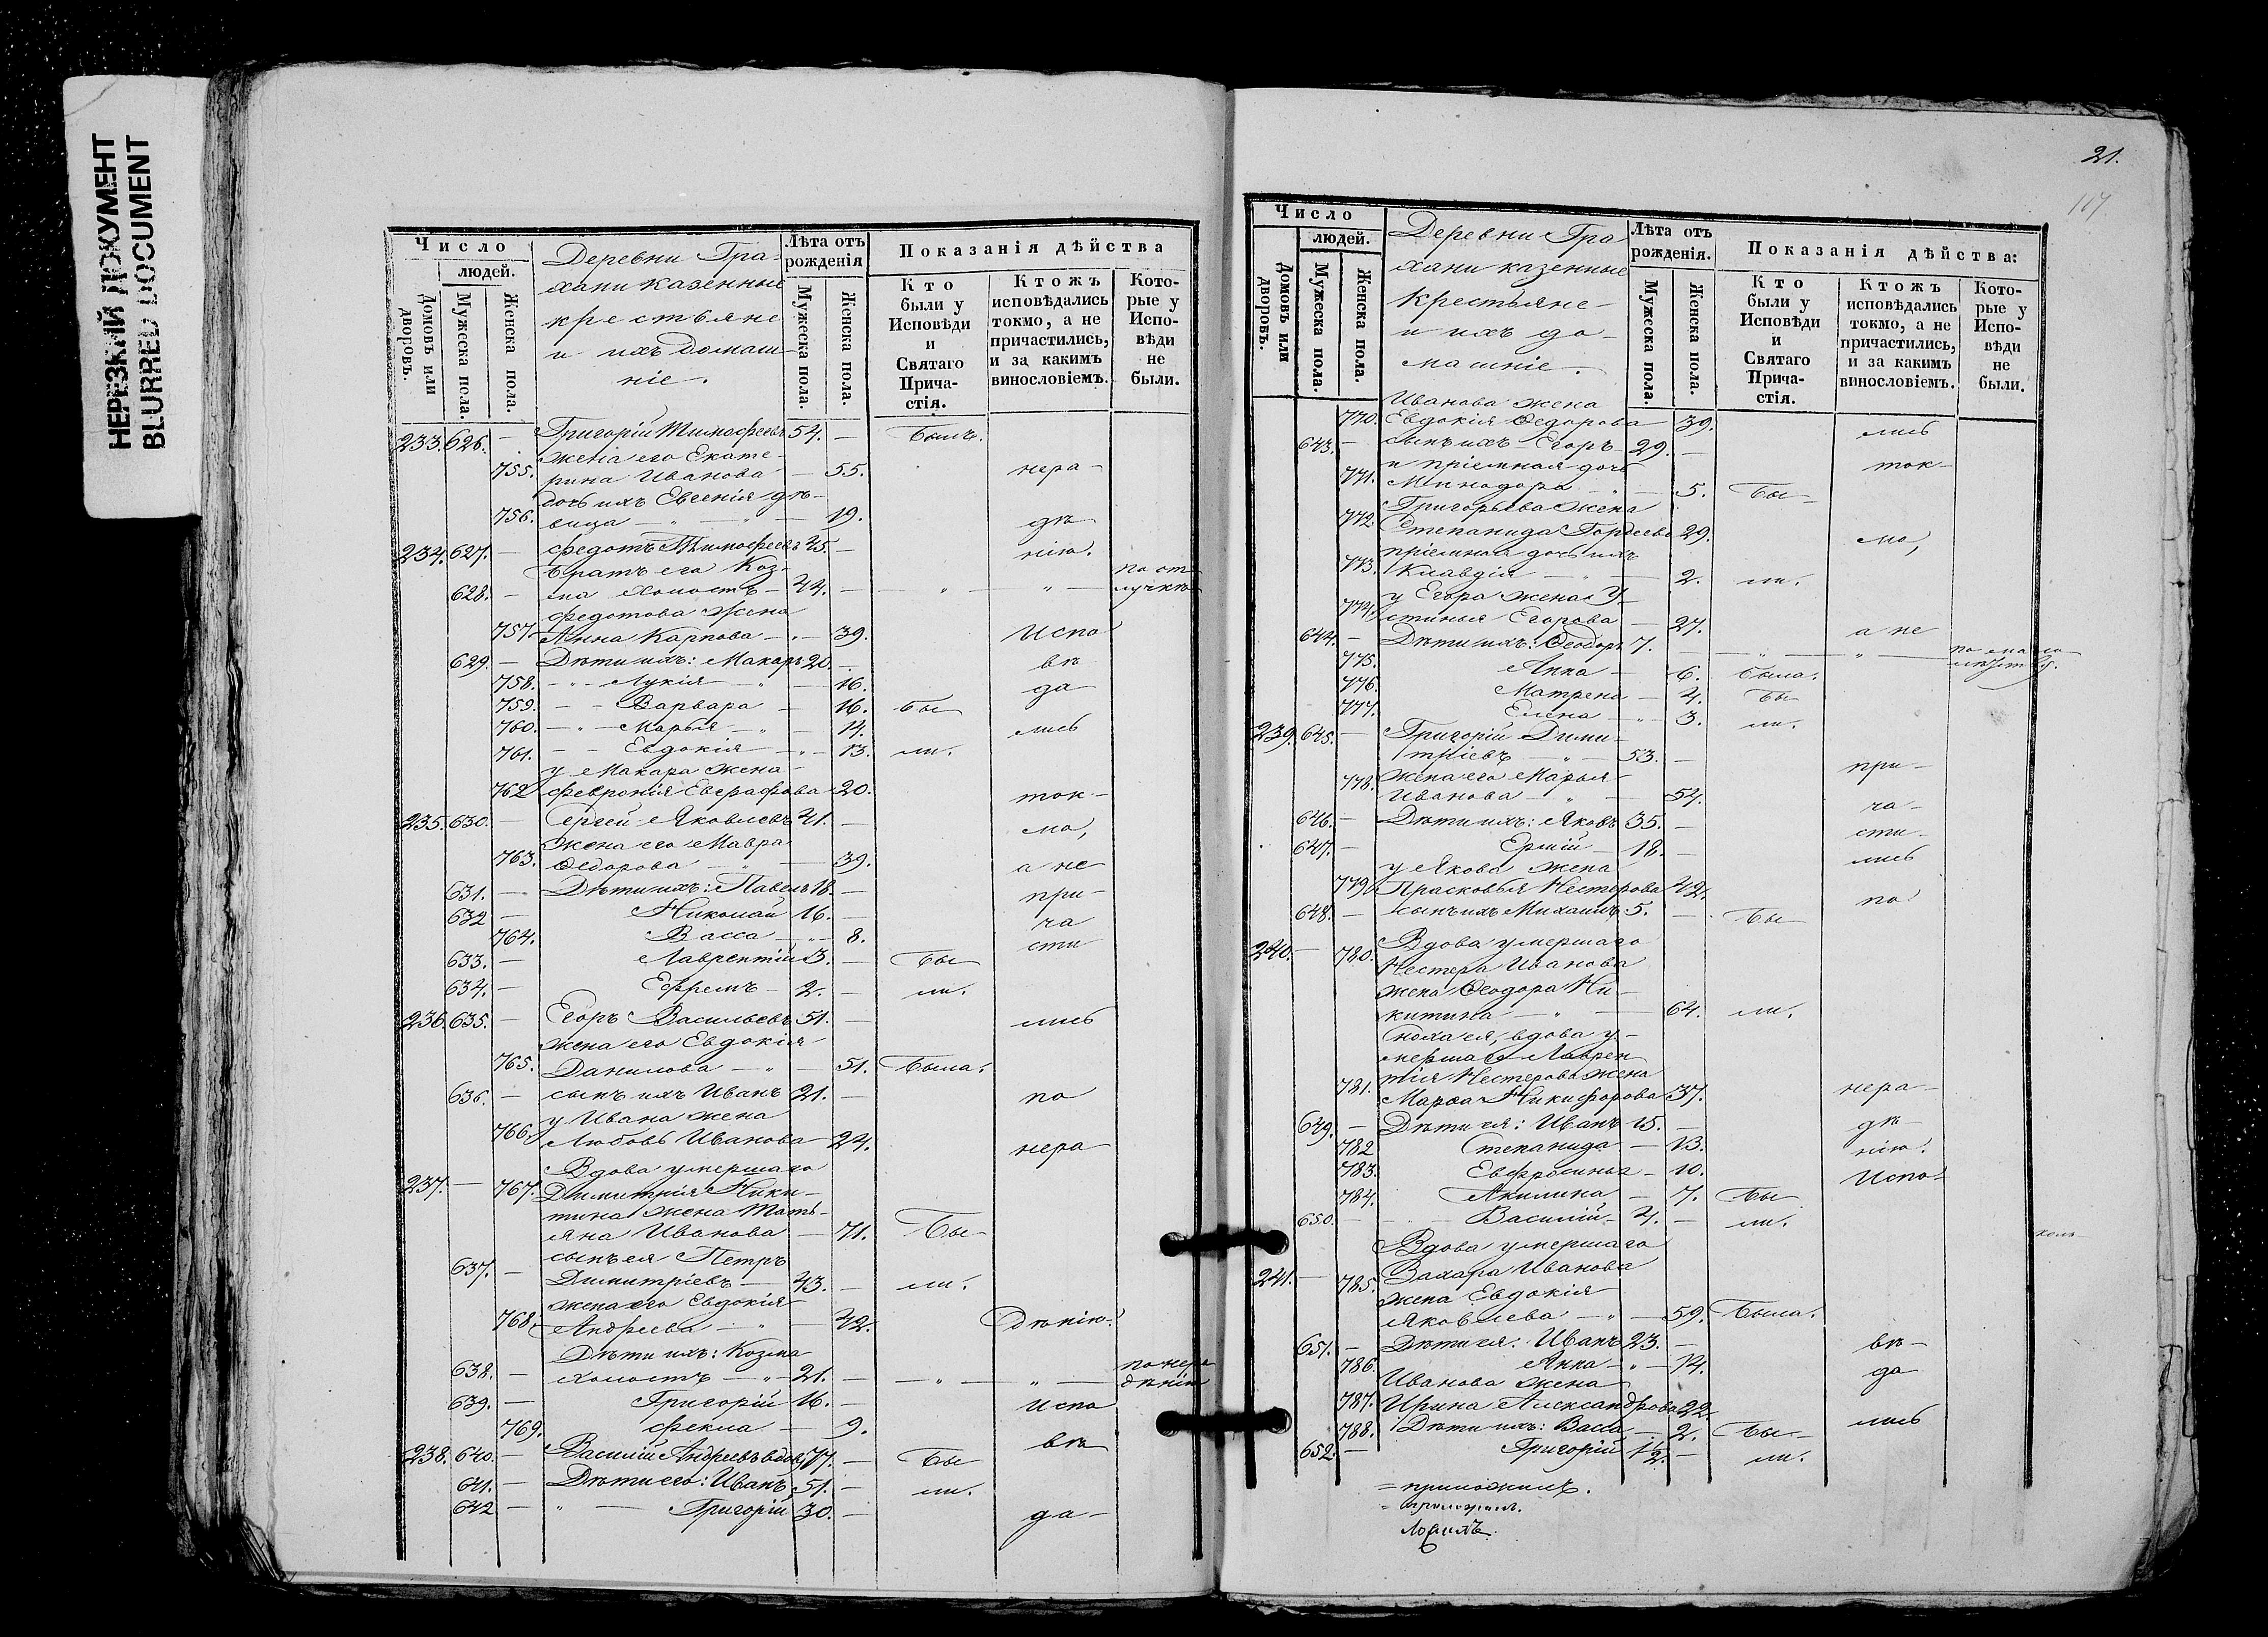 НЕРЕЗКИЙ ДОКУМЕНТ
BLURRED DOCUMENT
Число
людей.
Домовъ или дворовъ.
Мужеска пола.
Женска пола.
Деревни Гра-
хани казенные
крестьяне
и ихъ домаш-
ніе.
Лѣта отъ рожденія
Мужеска пола.
Женска пола.
Показанія дѣйства
Кто были у Исповѣди и Святаго Причастія.
Ктожъ исповѣдались токмо, а не причастились, и за какимъ винословіемъ.
Которые у Исповѣди не были.
233. 626. — Григорій Тимофеевъ 54. — Былъ.
жена его Екате-
755. рина Иванова — 55. нера-
дочь ихъ Евгенія дѣ-
756. вица — " — 19. дѣ-
234. 627. — Федотъ Тимофеевъ 45. — нію.
братъ его Коз- по от
628. — ма холостъ — 44. — " — " — лучкѣ
Федотова жена
757. Анна Карпова — " — 39. Испо
629. — Дѣти ихъ: Макаръ 20. — вѣ
758. — " — Лукія — " — 16. да
759. — — Варвара — 16. Бы
760. — " — Марья — " — 14. лись
761. — — Евдокія — " — 13. ли.
у Макара жена
762 Февронія Евграфова 20. ток-
235. 630. — Сергей Яковлевъ 41. — мо,
жена его Мавра
763. Ѳедорова — " — 39. а не
631. — Дѣти ихъ: Павелъ 18. — при-
632 — Николай 16. — ча
764. Васса — " — 8. сти
633. — Лаврентій 3. — Бы
634. — Ефремъ — 2. — ли.
236. 635. — Егоръ Васильевъ 51. — лись
жена его Евдокія
765. Данилова — " — 51. Была.
636. — сынъ ихъ Иванъ 21. — по
у Ивана жена
766. Любовь Иванова 24. нера
Вдова умершаго
237. — 767. Димитрія Ники-
тина жена Тать-
яна Иванова — 71. Бы-
сынъ ея Петръ
637. — Димитріевъ — 43. — ли.
жена его Евдокія
768. Андреева — " — 42. Дѣнію.
Дѣти ихъ: Козма по нера
638. — холостъ — " — 21. — " — " — дѣнію
639. — Григорій 16. — Испо
769. Фекла — 9.
вѣ
238. 640. — Василій Андреевъ вдов, 77. — Бы
641. — Дѣти его: Иванъ, 51. — ли.
642 — " — Григорій 30. — да-
21.
117
Число
людей.
Домовъ или дворовъ.
Мужеска пола.
Женска пола.
Деревни Гра
хани казенные
крестьяне-
и ихъ до-
машніе.
Лѣта отъ рожденія.
Мужеска пола.
Женска пола.
Показанія дѣйства:
Кто были у Исповѣди и Святаго Причастія.
Ктожъ исповѣдались токмо, а не причастились, и за какимъ винословіемъ.
Которые у Исповѣди не были.
Иванова жена
770. Евдокія Ѳедорова 39. лись
643. — сынъ ихъ Егоръ 29. —
и пріемная дочь ток-
771. Минодора — " — 5. Бы-
Григорьева жена
772. Степанида Гордеева 29. мо,
пріемная дочь ихъ
773. Клавдія — " — 2. ли.
у Егора жена У-
774. стинья Егорова — 27. а не
644. — Дѣти ихъ: Ѳеодоръ 7. — " — " — по мало
лѣтству.
775. Анна — 6. Была.
776. Матрена — 4. Бы
777. Елена — " — 3. ли.
239. 645. — Григорій Дими-
тріевъ — " — 53. — при-
778. жена его Марья
Иванова — " — 54. ча-
646. — Дѣти ихъ: Яковъ 35. — сти-
647. — Ермій — 18. — лись
у Якова жена
779. Прасковья Нестерова 42. по
648. — сынъ ихъ Михаилъ 5. — Бы-
Вдова умершаго
240. — 780. Нестера Иванова
жена Ѳеодора Ни-
китина — " — 64. ли.
сноха ея, вдова у-
мершаго Лаврен
тія Нестерова жена
781. Марѳа Никифорова 37. нера-
649. — Дѣти ея: Иванъ 15. — дѣ-
782 Степанида — 13. нію.
783. Евфросинья — 10. Испо-
784. Акилина — 7. Бы
650. — Василій — 4. — ли.
Вдова умершаго
241. — 785. Захара Иванова
жена Евдокія
Яковлева — " — 59. Была.
651. — Дѣти ея: Иванъ 23. — вѣ-
786. Анна — " — 14. да
Иванова жена
787. Ирина Александрова 22. лись
788. Дѣти ихъ: Васса — 2. Бы-
652. — Григорій 1/2. — ли.
= приложилъ.